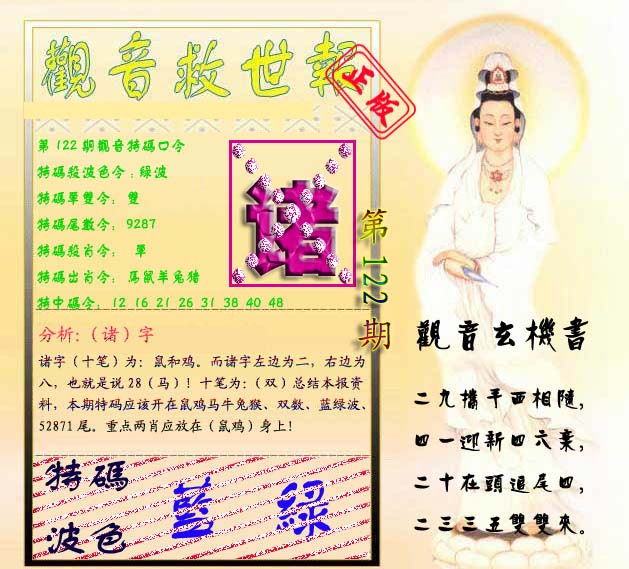 觀音救世報
正版
第122期觀音特碼口令
特碼殺波色令：綠波
特碼單雙令： 雙
特碼尾數令： 9287
特碼殺肖令： 單
特碼出肖令： 馬鼠羊兔豬
特中碼令： 12 16 21 26 31 38 40 48
诸
第122期
分析:（诸）字
诸字（十笔）为：鼠和鸡。而诸字左边为二，右边为
八，也就是说28（马）！十笔为:（双）总结本报资
料，本期特码应该开在鼠鸡马牛兔猴、双数、蓝绿波、
52871尾。重点两肖应放在（鼠鸡）身上！
特碼
波色
藍 綠
觀音玄機書
二九攜平西相隨，
四一迎新四六棄，
二十在頭追尾四，
二三三五雙雙來。